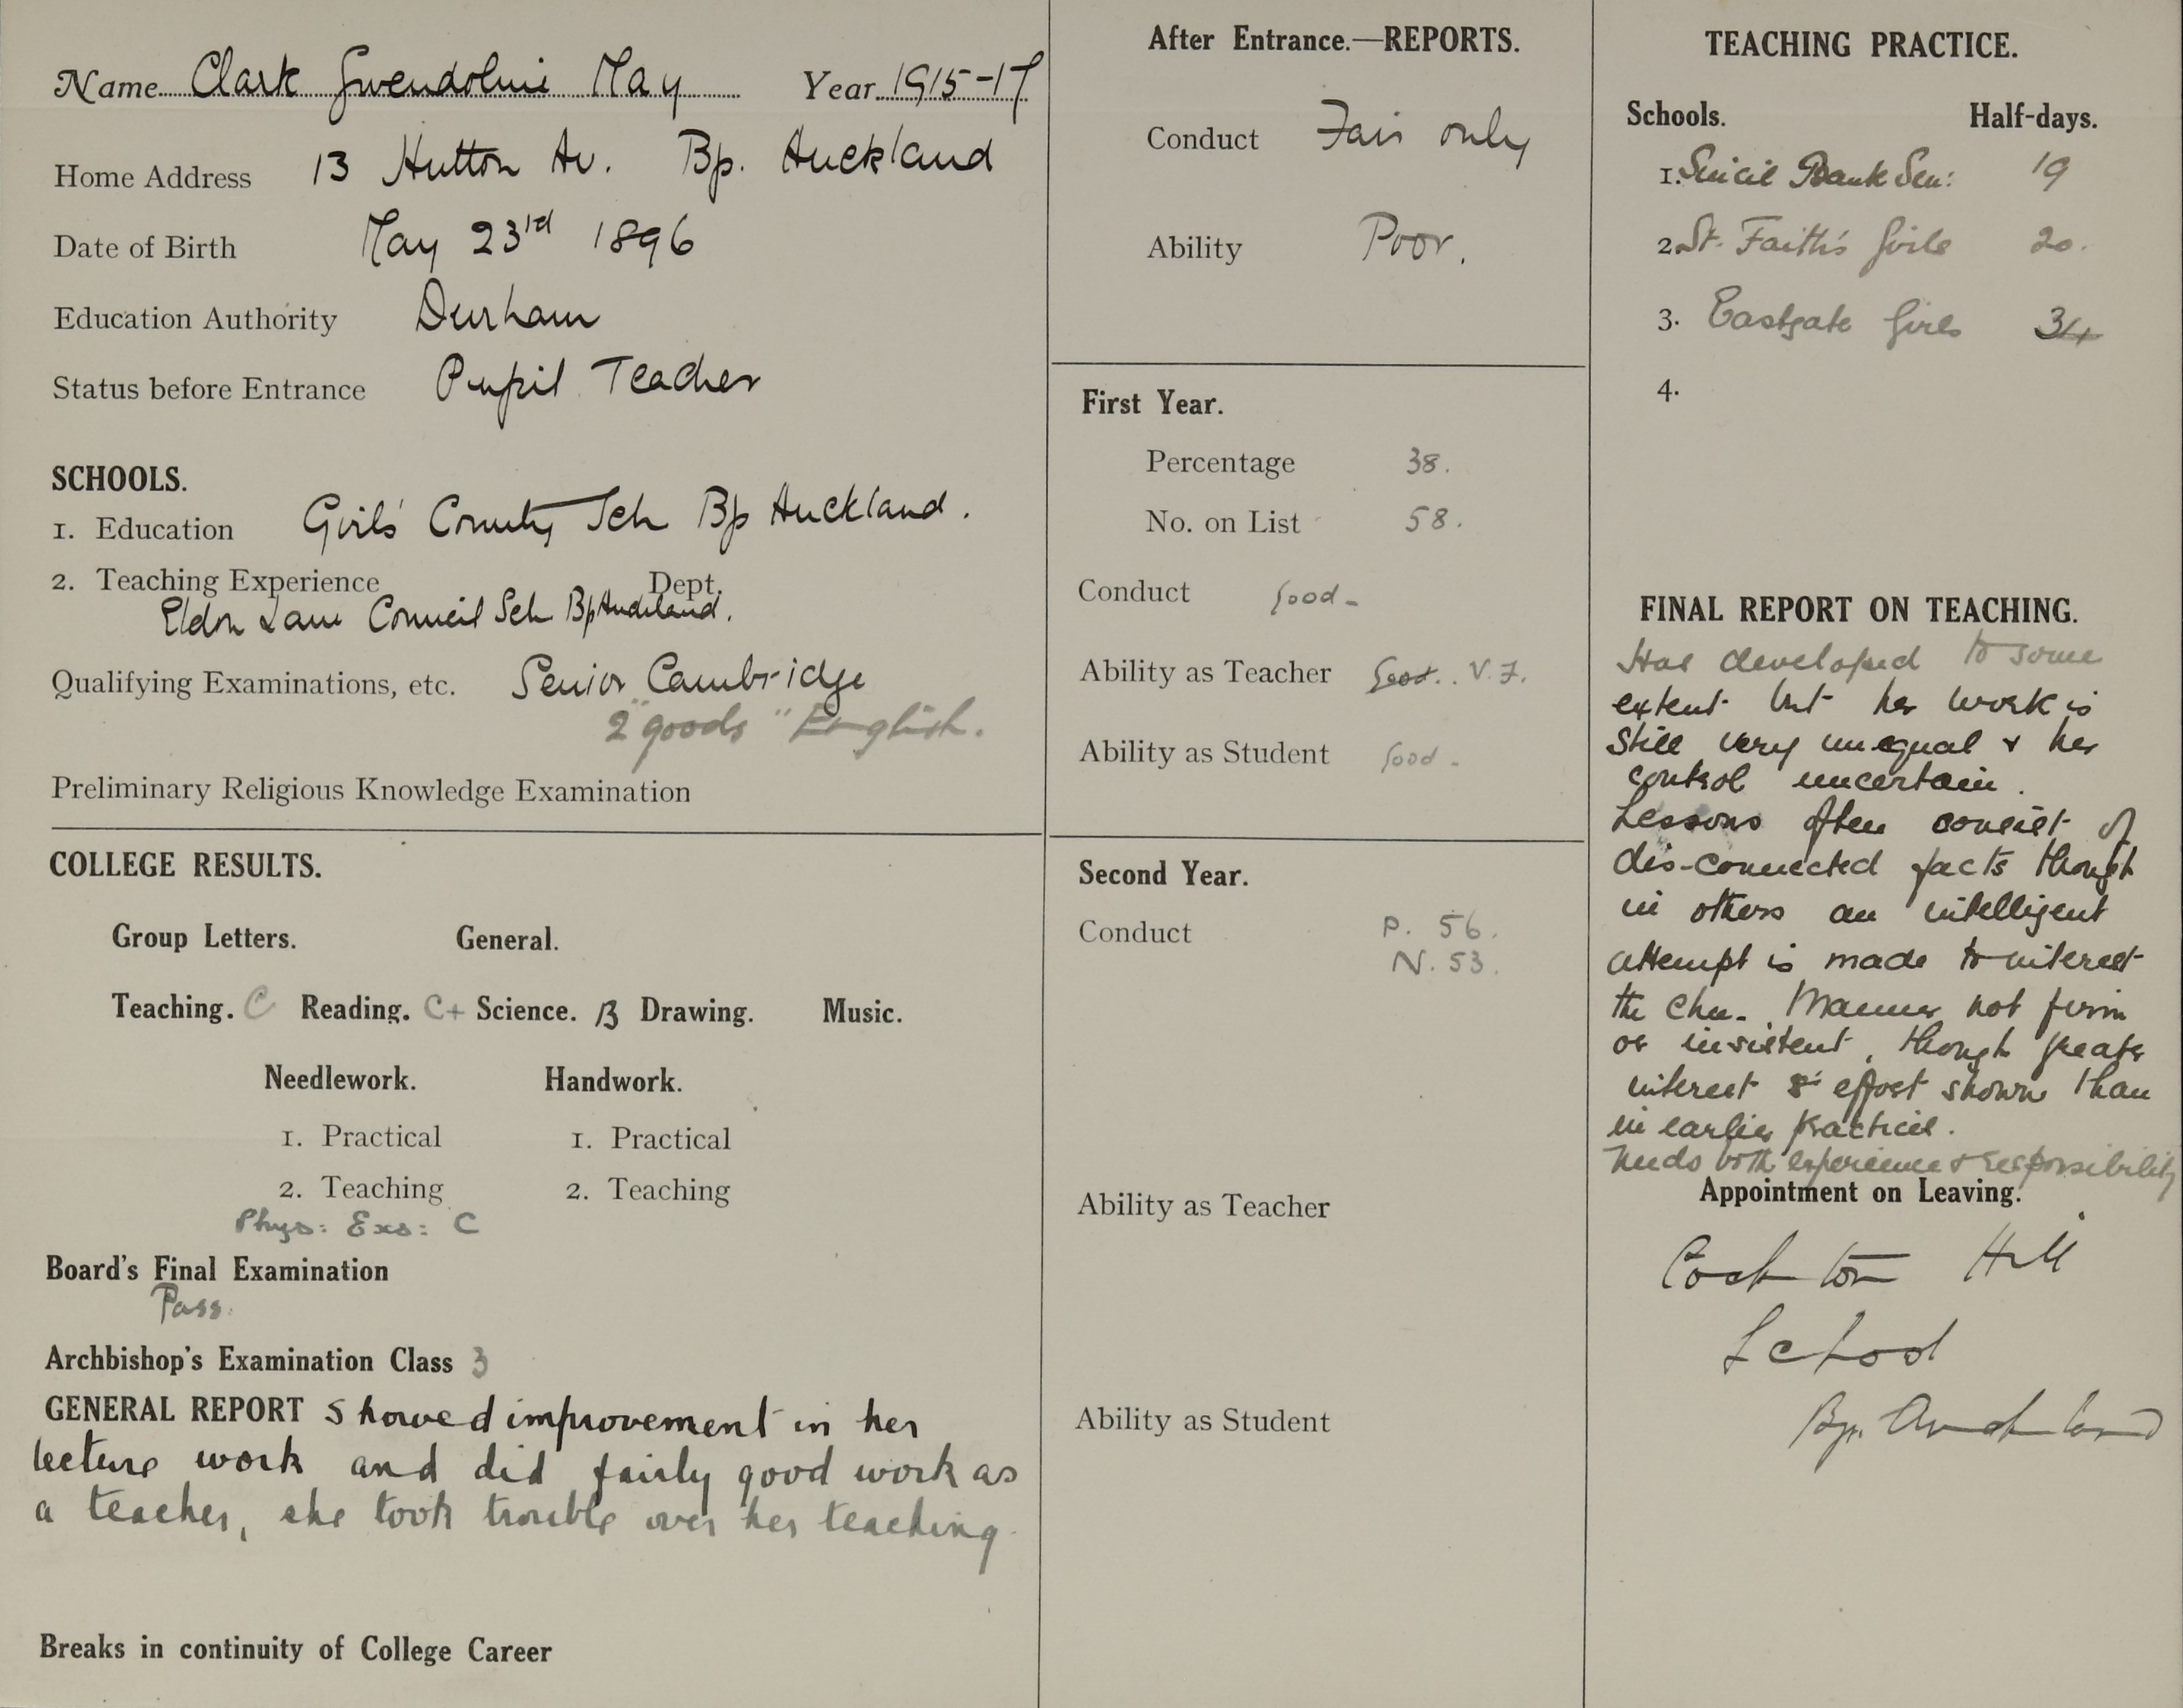 Name Clark Gwendoline May Year 1915-17
Home Address 13 Hutton Av. Bp. Auckland
Date of Birth May 23rd 1896
Education Authority Durham
Status before Entrance Pupil Teacher
SCHOOLS.
1. Education Girls' County Sch Bp Auckland.
2. Teaching Experience Dept.
Eldon Lane Council Sch Bp Auckland.
Qualifying Examinations, etc. Senior Cambridge
2 "goods" English.
Preliminary Religious Knowledge Examination
COLLEGE RESULTS.
Group Letters. General.
Teaching. C Reading. C+ Science. B Drawing. Music.
Needlework. Handwork.
1. Practical 1. Practical
2. Teaching 2. Teaching
Phys: Exs: C
Board's Final Examination
Pass.
Archbishop's Examination Class 3
GENERAL REPORT Showed improvement in her
lecture work and did fairly good work as
a teacher, she took trouble over her teaching.
Breaks in continuity of College Career
After Entrance.—REPORTS.
Conduct Fair only
Ability Poor.
First Year.
Percentage 38.
No. on List 58.
Conduct Good-
Ability as Teacher Good. V.F.
Ability as Student Good-
Second Year.
Conduct P. 56.
N. 53.
Ability as Teacher
Ability as Student
TEACHING PRACTICE.
Schools. Half-days.
1. Bank Sen: 19
2. St. Faith's Girls 20.
3. Eastgate Girls 34
4.
FINAL REPORT ON TEACHING.
Has developed to some
extent but her work is
still very unequal & her
control uncertain.
Lessons often consist of
dis-connected facts though
in others an intelligent
attempt is made to interest
the chn. Manner not firm
or insistent, though greater
interest & effort shown than
in earlier practices.
Needs both experience & responsibility
Appointment on Leaving.
Cockton Hill
School
Bp. Auckland